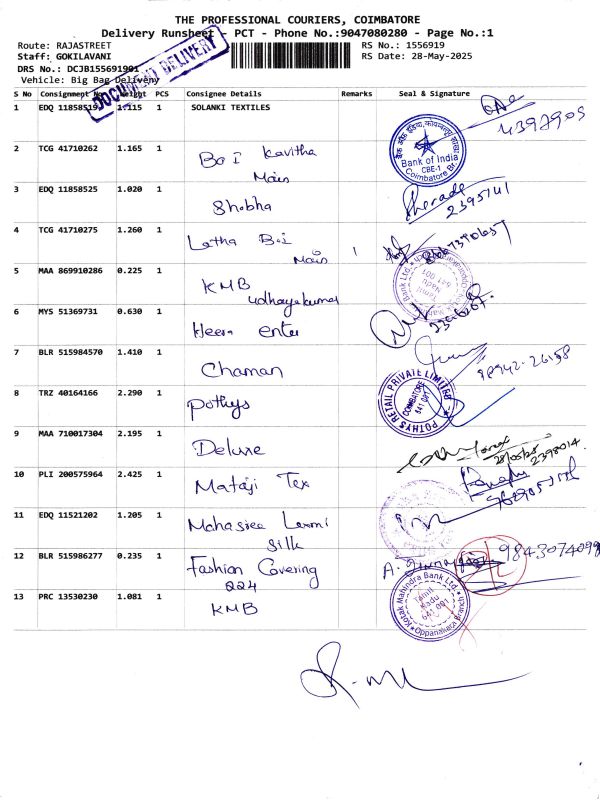 THE PROFESSIONAL COURIERS, COIMBATORE
Delivery Runsheet - PCT - Phone No.:9047080280 - Page No.:1
Route: RAJASTREET
RS No.: 1556919
Staff: GOKILAVANI
RS Date: 28-May-2025
DRS No.: DCJB155691901
Vehicle: Big Bag Delivery
DOCUMENT DELIVERY
S No Consignment No Weight PCS Consignee Details Remarks Seal & Signature
1 EDQ 1.115 1 SOLANKI TEXTILES
4397905
2 TCG 41710262 1.165 1 BOI Kavitha
Main
Bank of India
CBE-1
Coimbatore Br.
3 EDQ 11858525 1.020 1 Shobha
2395141
4 TCG 41710275 1.260 1 Latha BOI
Main
5 MAA 869910286 0.225 1 KMB
udhayakumar
6 MYS 51369731 0.630 1 Heera enter
7 BLR 515984570 1.410 1 Chaman
98942-26158
8 TRZ 40164166 2.290 1 Pothys
POTHYS RETAIL PRIVATE LIMITED
COIMBATORE
641 001
9 MAA 710017304 2.195 1 Deluxe
28/05/25
2398014
10 PLI 200575964 2.425 1 Mataji Tex
11 EDQ 11521202 1.205 1 Mahasree Laxmi
Silk
12 BLR 515986277 0.235 1 Fashion Covering
224
9843074099
13 PRC 13530230 1.081 1 KMB
Kotak Mahindra Bank Ltd.
Tamil
Nadu
641 001
Oppanakara Branch